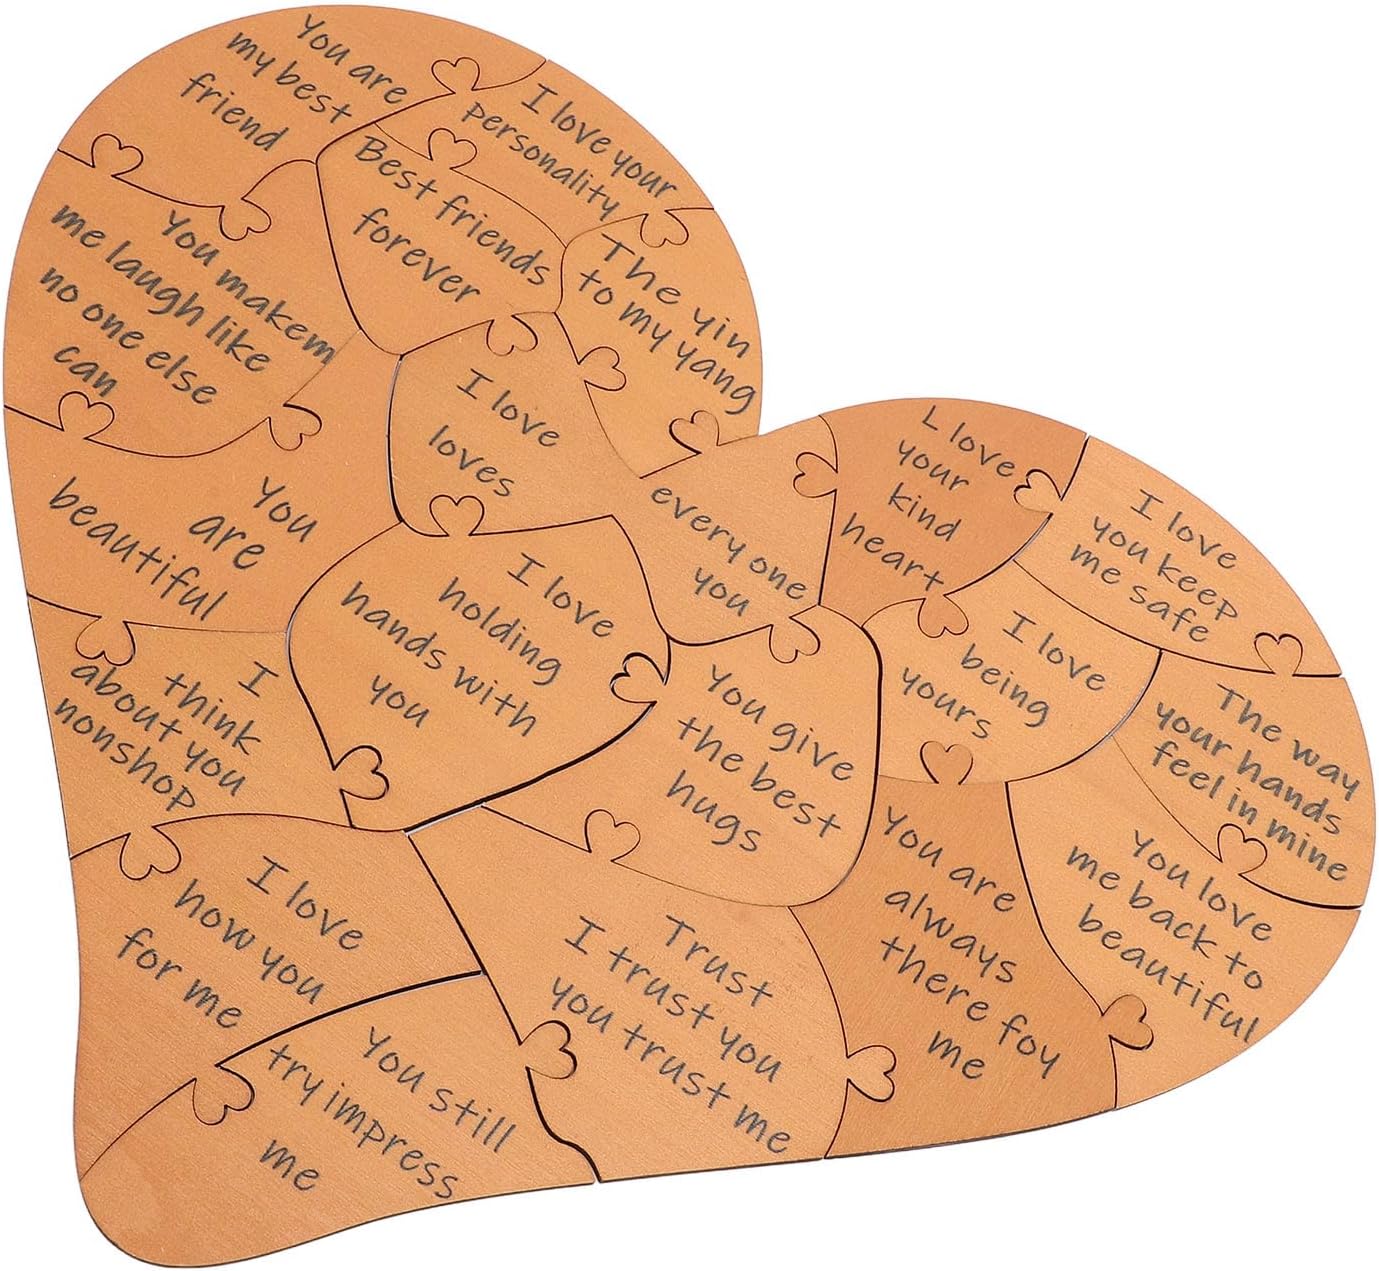 You are
my best
friend
I love your
personality
Best friends
forever
You makem
me laugh like
no one else
can
The yin
to my yang
I love
loves
every one
you
L love
your
kind
heart
I love
you keep
me safe
You
are
beautiful
I love
holding
hands with
you
I love
being
yours
I
think
about you
nonshop
You give
the best
hugs
The way
your hands
feel in mine
You are
always
there foy
me
You love
me back to
beautiful
I love
how you
for me
Trust
I trust you
you trust me
You still
try impress
me